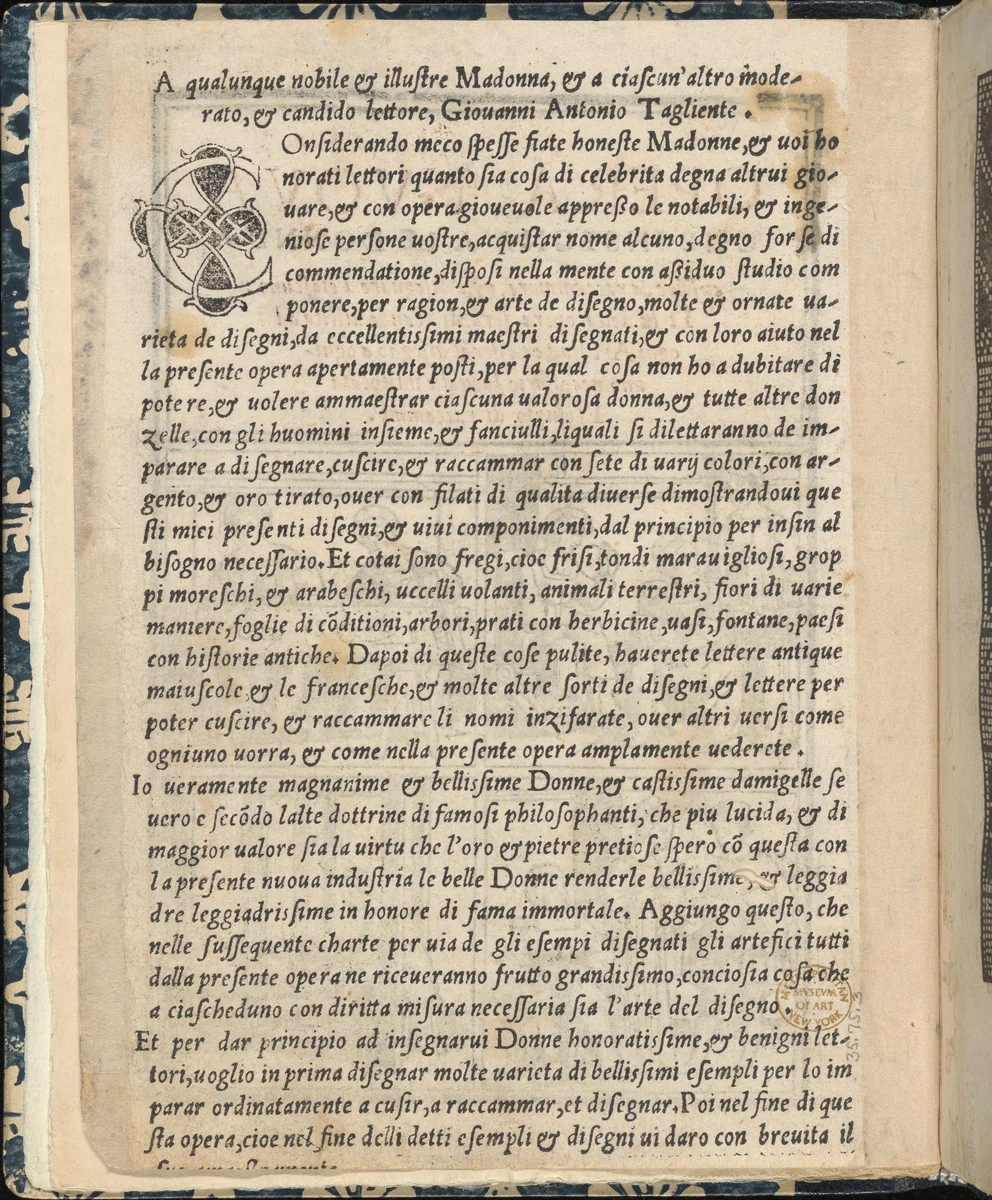 A qualunque nobile & illuſtre Madonna, & a ciaſcun'altro mode-
rato, & candido lettore, Giouanni Antonio Tagliente .
COnſiderando meco ſpeſſe fiate honeſte Madonne, & uoi ho
norati lettori quanto ſia coſa di celebrita degna altrui gio-
uare, & con opera gioueuole appreßo le notabili, & inge-
nioſe perſone uoſtre, acquiſtar nome alcuno, degno forſe di
commendatione, diſpoſi nella mente con aßiduo ſtudio com
ponere, per ragion, & arte de diſegno, molte & ornate ua-
rieta de diſegni, da eccellentisſimi maeſtri diſegnati, & con loro aiuto nel
la preſente opera apertamente poſti, per la qual coſa non ho a dubitare di
potere, & uolere ammaeſtrar ciaſcuna ualoroſa donna, & tutte altre don
zelle, con gli huomini inſieme, & fanciulli, liquali ſi dilettaranno de im-
parare a diſegnare, cuſcire, & raccammar con ſete di uarij colori, con ar-
gento, & oro tirato, ouer con filati di qualita diuerſe dimoſtrandoui que
ſti miei preſenti diſegni, & uiui componimenti, dal principio per inſin al
biſogno neceſſario. Et cotai ſono fregi, cioe friſi, tondi marauiglioſi, grop
pi moreſchi, & arabeſchi, uccelli uolanti, animali terreſtri, fiori di uarie
maniere, foglie di cõditioni, arbori, prati con herbicine, uaſi, fontane, paeſi
con hiſtorie antiche. Dapoi di queſte coſe pulite, hauerete lettere antique
maiuſcole, & le franceſche, & molte altre ſorti de diſegni, & lettere per
poter cuſcire, & raccammare li nomi inzifarate, ouer altri uerſi come
ogniuno uorra, & come nella preſente opera amplamente uederete .
Io ueramente magnanime & bellisſime Donne, & caſtisſime damigelle ſe
uero e ſecõdo lalte dottrine di famoſi philoſophanti, che piu lucida, & di
maggior ualore ſia la uirtu che l'oro & pietre pretioſe ſpero cõ queſta con
la preſente nuoua induſtria le belle Donne renderle bellisſime, & leggia
dre leggiadrisſime in honore di fama immortale. Aggiungo queſto, che
nelle ſuſſequente charte per uia de gli eſempi diſegnati gli artefici tutti
dalla preſente opera ne riceueranno frutto grandisſimo, concioſia coſa che
a ciaſcheduno con diritta miſura neceſſaria ſia l'arte del diſegno.
Et per dar principio ad inſegnarui Donne honoratisſime, & benigni let-
tori, uoglio in prima diſegnar molte uarieta di bellisſimi eſempli per lo im
parar ordinatamente a cuſir, a raccammar, et diſegnar. Poi nel fine di que
ſta opera, cioe nel fine delli detti eſempli & diſegni ui daro con breuita il
MUSEUM
OF ART
NEW YORK